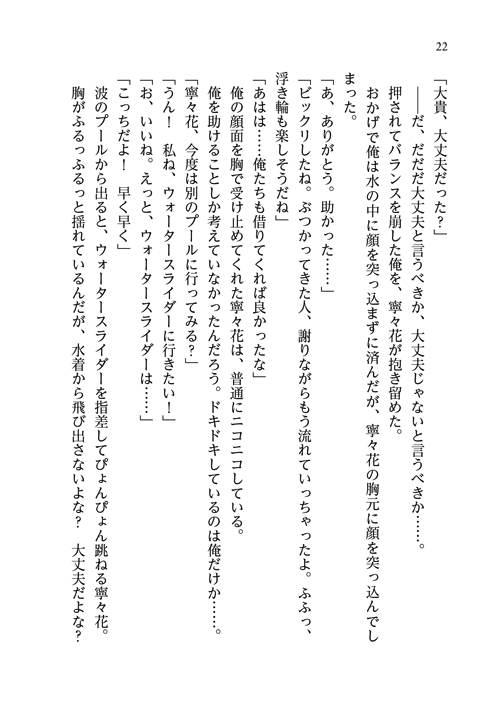 22
「大貴、大丈夫だった？」
――だ、だだだ大丈夫と言うべきか、大丈夫じゃないと言うべきか……。
押されてバランスを崩した俺を、寧々花が抱き留めた。
おかげで俺は水の中に顔を突っ込まずに済んだが、寧々花の胸元に顔を突っ込んでし
まった。
「あ、ありがとう。助かった……」
「ビックリしたね。ぶつかってきた人、謝りながらもう流れていっちゃったよ。ふふっ、
浮き輪も楽しそうだね」
「あはは……俺たちも借りてくれば良かったな」
俺の顔面を胸で受け止めてくれた寧々花は、普通にニコニコしている。
俺を助けることしか考えていなかったんだろう。ドキドキしているのは俺だけか……。
「寧々花、今度は別のプールに行ってみる？」
「うん！　私ね、ウォータースライダーに行きたい！」
「お、いいね。えっと、ウォータースライダーは……」
「こっちだよ！　早く早く」
波のプールから出ると、ウォータースライダーを指差してぴょんぴょん跳ねる寧々花。
胸がふるっふるっと揺れているんだが、水着から飛び出さないよな？　大丈夫だよな？